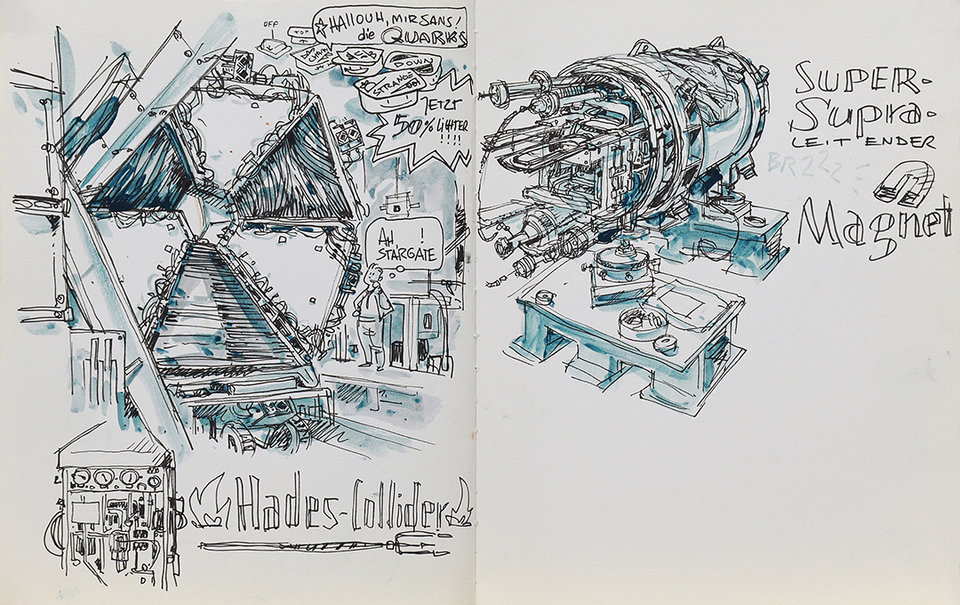 HALLOUH, MIR SANS!
die QUARKS
TOP
DOWN
STRANGE
JETZT
50% LICHTER
!!!!
AH !
STARGATE
Hades-Collider
SUPER-
Supra-
LEIT ENDER
Magnet